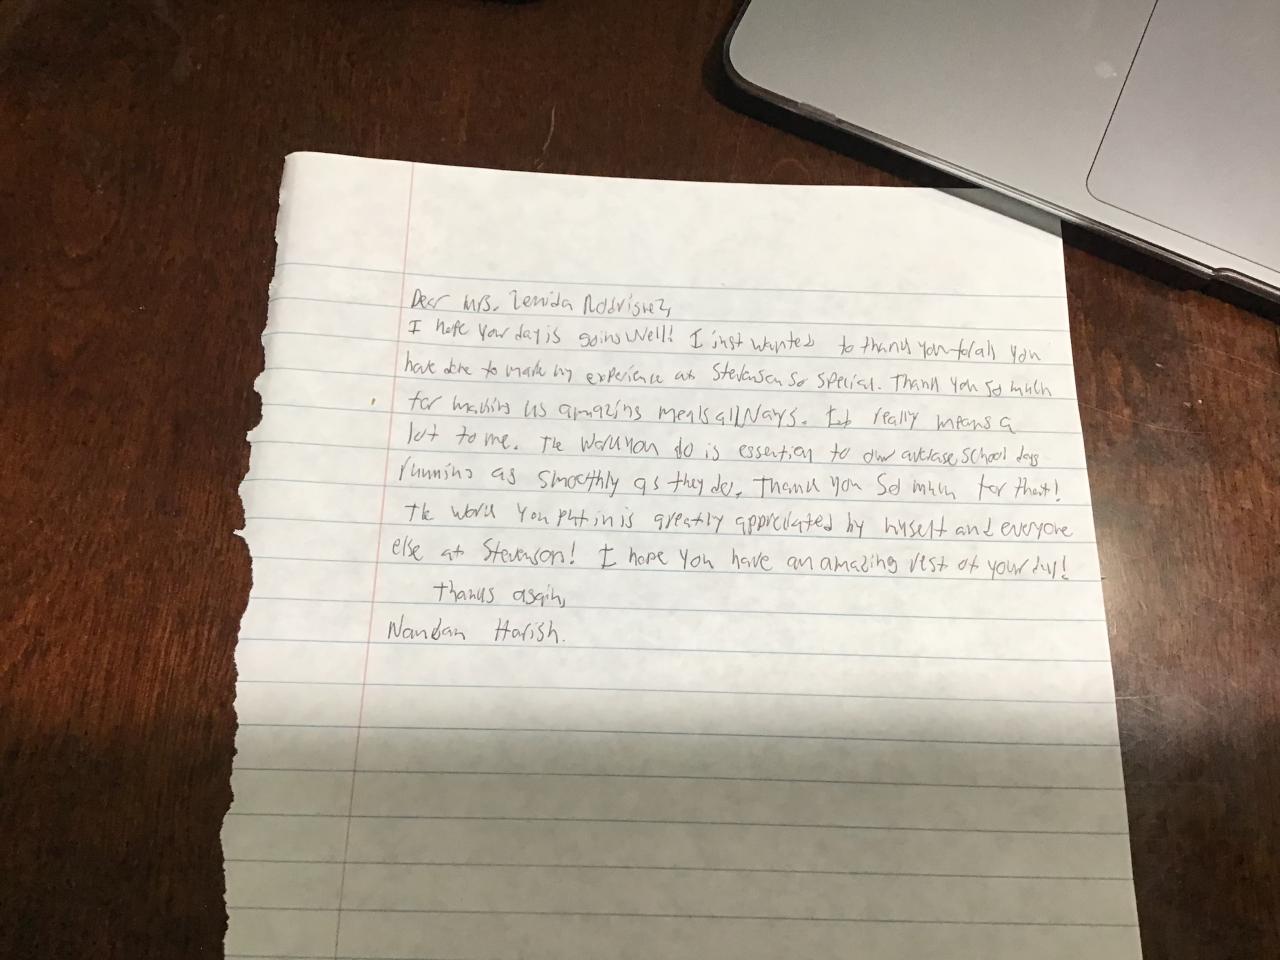 Dear Mrs. Zenida Rodriguez,
I hope your day is going well! I just wanted to thank you for all you
have done to make my experience at Stevenson so special. Thank you so much
for making us amazing meals always. It really means a
lot to me. The work you do is essention to our average school days
running as smoothly as they do. Thank you so much for that!
The work you put in is greatly appreciated by myself and everyone
else at Stevenson! I hope you have an amazing rest of your day!
Thanks again,
Nandan Harish.